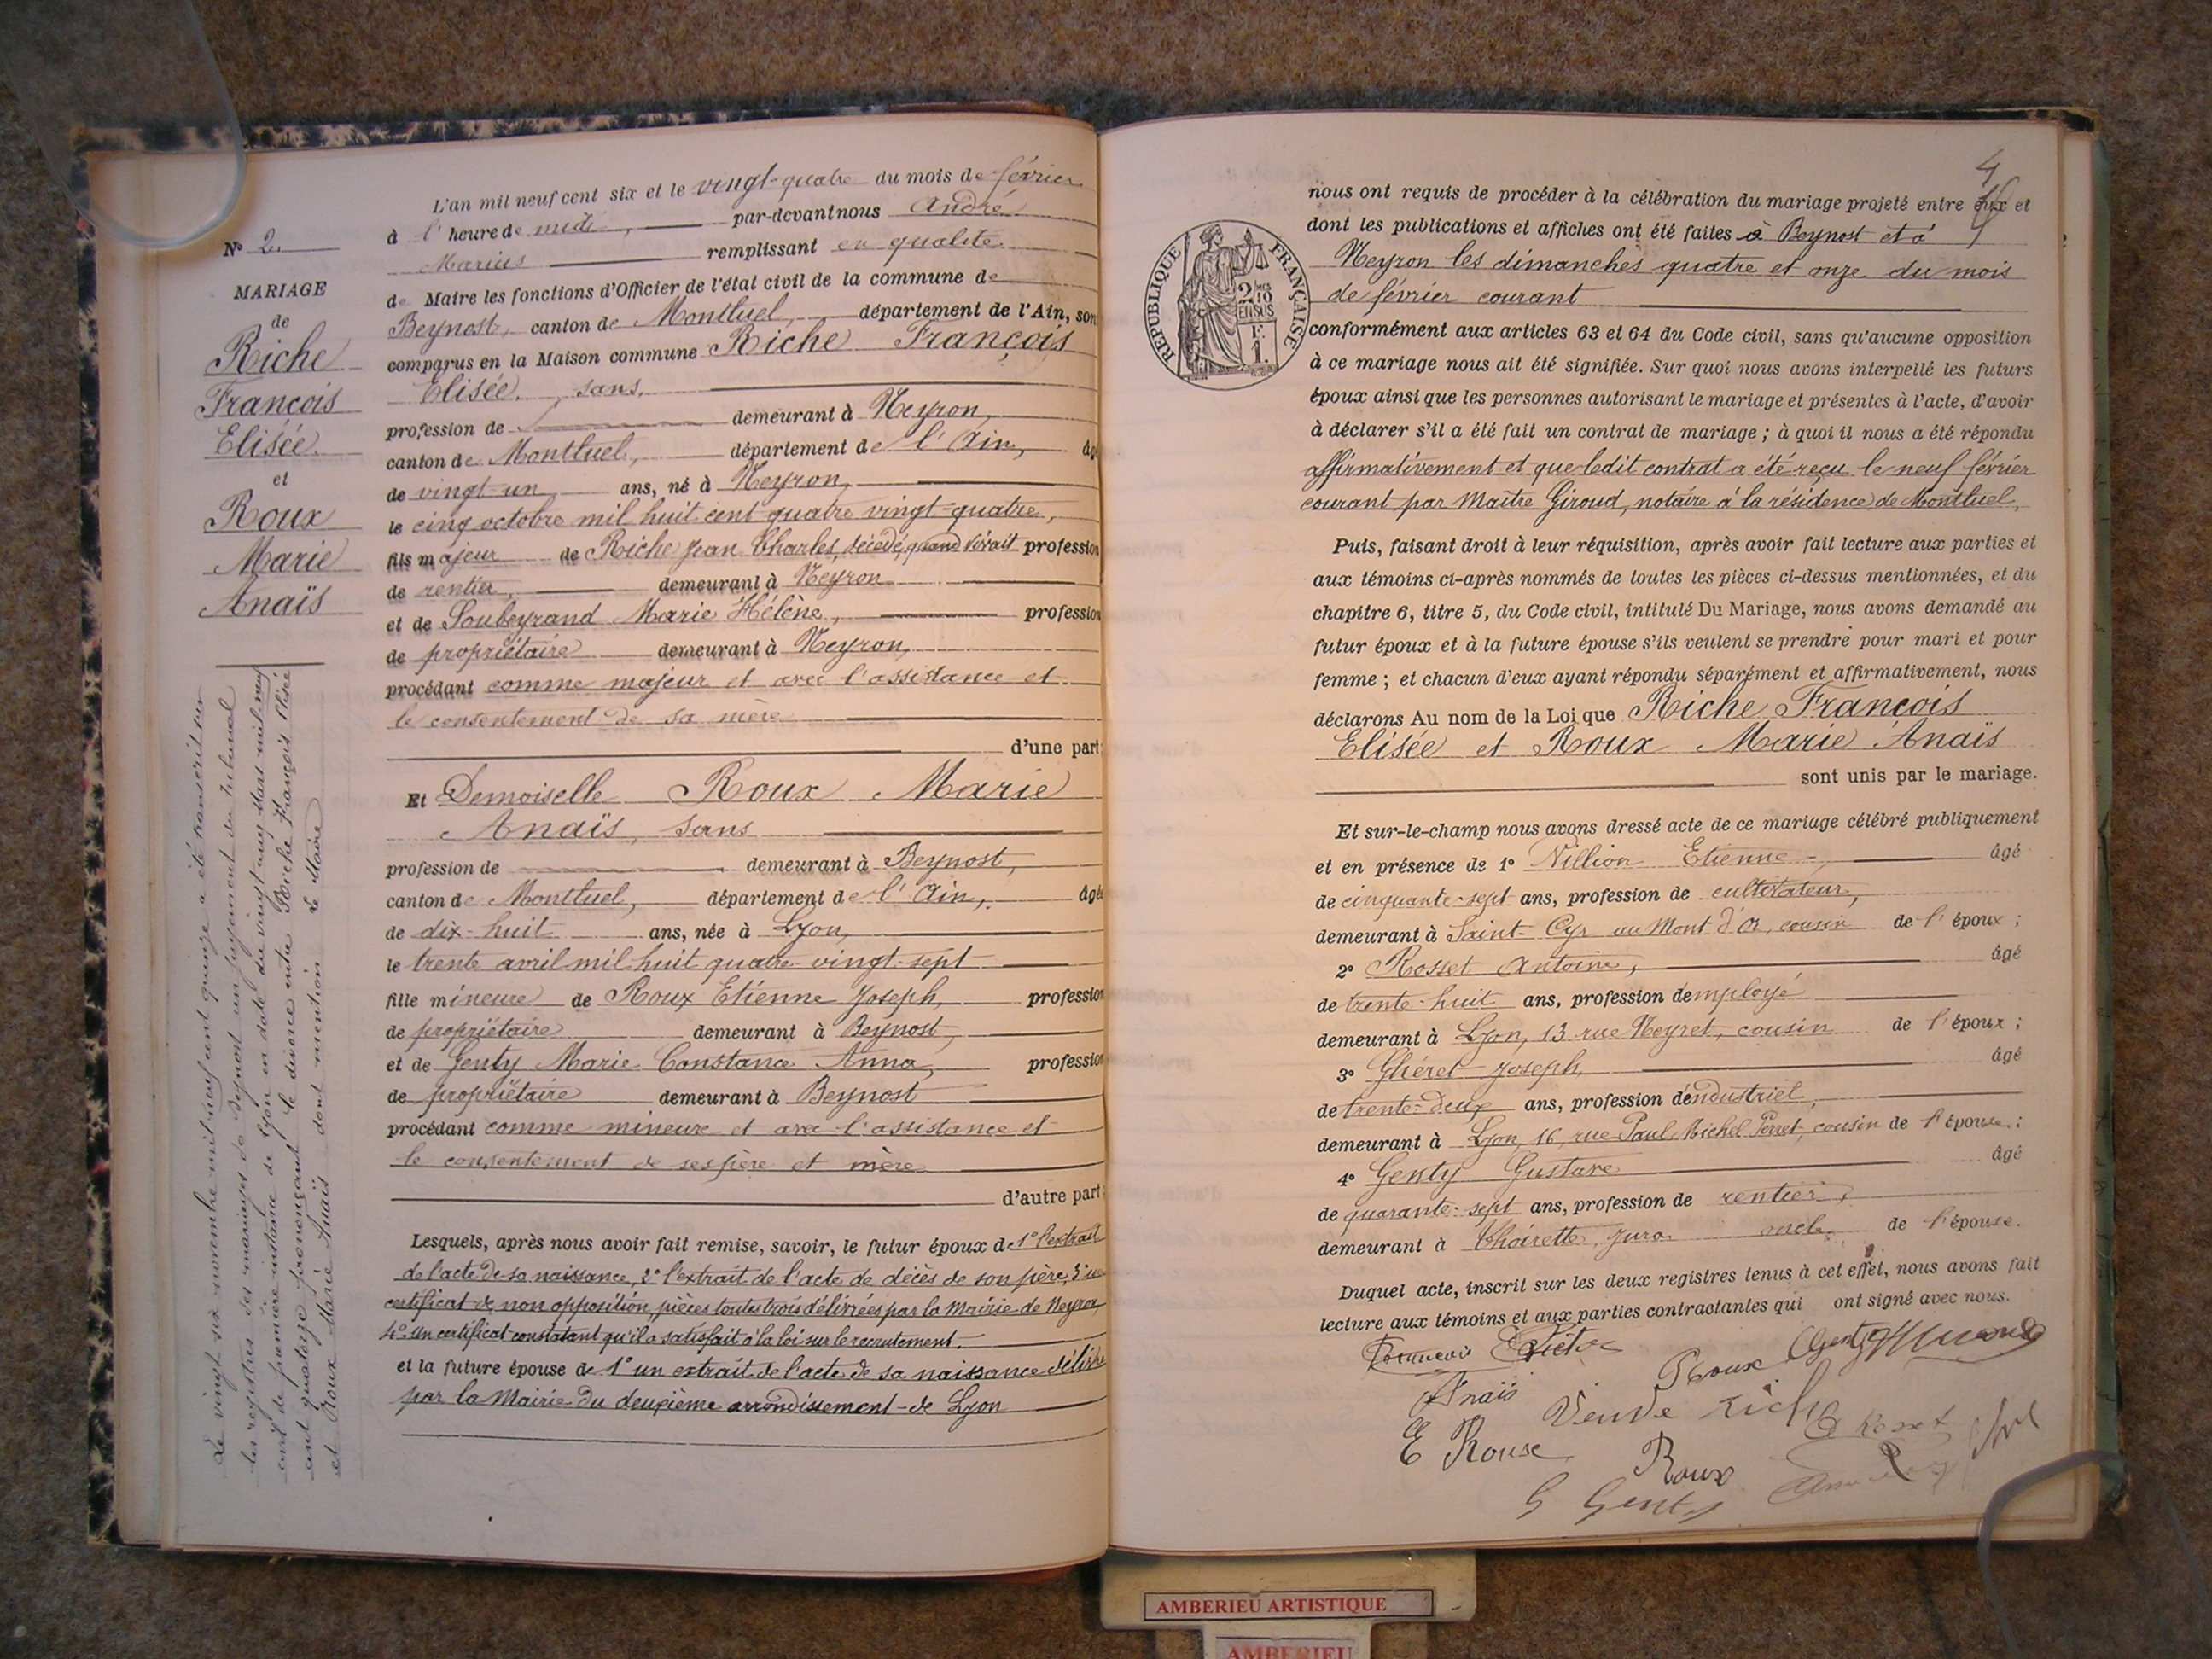 N° 2
MARIAGE
de
Riche
François
Elisée
et
Roux
Marie
Anaïs
Le vingt six novembre mil neuf cent quinze a été transcrit sur
les registres des mariages de Beynost un jugement du tribunal
civil de première instance de Lyon en date du vingt neuf Mars mil neuf
cent quatorze prononçant le divorce entre Riche François Elisée
et Roux Marie Anaïs dont mention Le Maire
L'an mil neuf cent six et le vingt-quatre du mois de février
à l'heure de midi, par-devant nous André
Marius remplissant en qualité
de Maire les fonctions d'Officier de l'état civil de la commune de
Beynost, canton de Montluel, département de l'Ain, son
comparus en la Maison commune Riche François
Elisée, sans
profession de demeurant à Neyron,
canton de Montluel, département de l'Ain, âgé
de vingt-un ans, né à Neyron,
le cinq octobre mil huit cent quatre vingt-quatre,
fils majeur de Riche Jean Charles, décédé, quand vivait profession
de rentier, demeurant à Neyron
et de Soubeyrand Marie Hélène, profession
de propriétaire demeurant à Neyron,
procédant comme majeur et avec l'assistance et
le consentement de sa mère
d'une part
Et Demoiselle Roux Marie
Anaïs, sans
profession de demeurant à Beynost,
canton de Montluel, département de l'Ain, âgée
de dix-huit ans, née à Lyon,
le trente avril mil huit quatre-vingt-sept
fille mineure de Roux Etienne Joseph, profession
de propriétaire demeurant à Beynost,
et de Genty Marie Constance Anna, profession
de propriétaire demeurant à Beynost
procédant comme mineure et avec l'assistance et
le consentement de ses père et mère
d'autre part
Lesquels, après nous avoir fait remise, savoir, le futur époux de 1° l'extrait
de l'acte de sa naissance, 2° l'extrait de l'acte de décès de son père, 3° un
certificat de non opposition, pièces toutes trois délivrées par la Mairie de Neyron,
4° un certificat constatant qu'il a satisfait à la loi sur le recrutement.
et la future épouse de 1° un extrait de l'acte de sa naissance délivré
par la Mairie du deuxième arrondissement de Lyon
4
nous ont requis de procéder à la célébration du mariage projeté entre eux et
dont les publications et affiches ont été faites à Beynost et à
Neyron les dimanches quatre et onze du mois
de février courant
RÉPUBLIQUE FRANÇAISE
2/10 EN SUS
1 F.
conformément aux articles 63 et 64 du Code civil, sans qu'aucune opposition
à ce mariage nous ait été signifiée. Sur quoi nous avons interpellé les futurs
époux ainsi que les personnes autorisant le mariage et présentes à l'acte, d'avoir
à déclarer s'il a été fait un contrat de mariage ; à quoi il nous a été répondu
affirmativement et que ledit contrat a été reçu le neuf février
courant par Maître Giroud, notaire à la résidence de Montluel,
Puis, faisant droit à leur réquisition, après avoir fait lecture aux parties et
aux témoins ci-après nommés de toutes les pièces ci-dessus mentionnées, et du
chapitre 6, titre 5, du Code civil, intitulé Du Mariage, nous avons demandé au
futur époux et à la future épouse s'ils veulent se prendre pour mari et pour
femme ; et chacun d'eux ayant répondu séparément et affirmativement, nous
déclarons Au nom de la Loi que Riche François
Elisée et Roux Marie Anaïs
sont unis par le mariage.
Et sur-le-champ nous avons dressé acte de ce mariage célébré publiquement
et en présence de 1° Villion Etienne, âgé
de cinquante-sept ans, profession de cultivateur,
demeurant à Saint-Cyr au Mont d'Or, cousin de l'époux ;
2° Rosset Antoine, âgé
de trente-huit ans, profession d'employé
demeurant à Lyon, 13 rue Neyret, cousin de l'époux ;
3° Ghéret Joseph, âgé
de trente-deux ans, profession d'industriel,
demeurant à Lyon, 16, rue Paul Michel Perret, cousin de l'épouse ;
4° Genty Gustave âgé
de quarante-sept ans, profession de rentier,
demeurant à Thoirette, Jura oncle de l'épouse.
Duquel acte, inscrit sur les deux registres tenus à cet effet, nous avons fait
lecture aux témoins et aux parties contractantes qui ont signé avec nous.
François
Roux
Anaïs
Veuve Riche
E Rouse
Roux
G Genty
AMBERIEU ARTISTIQUE
AMBERIEU